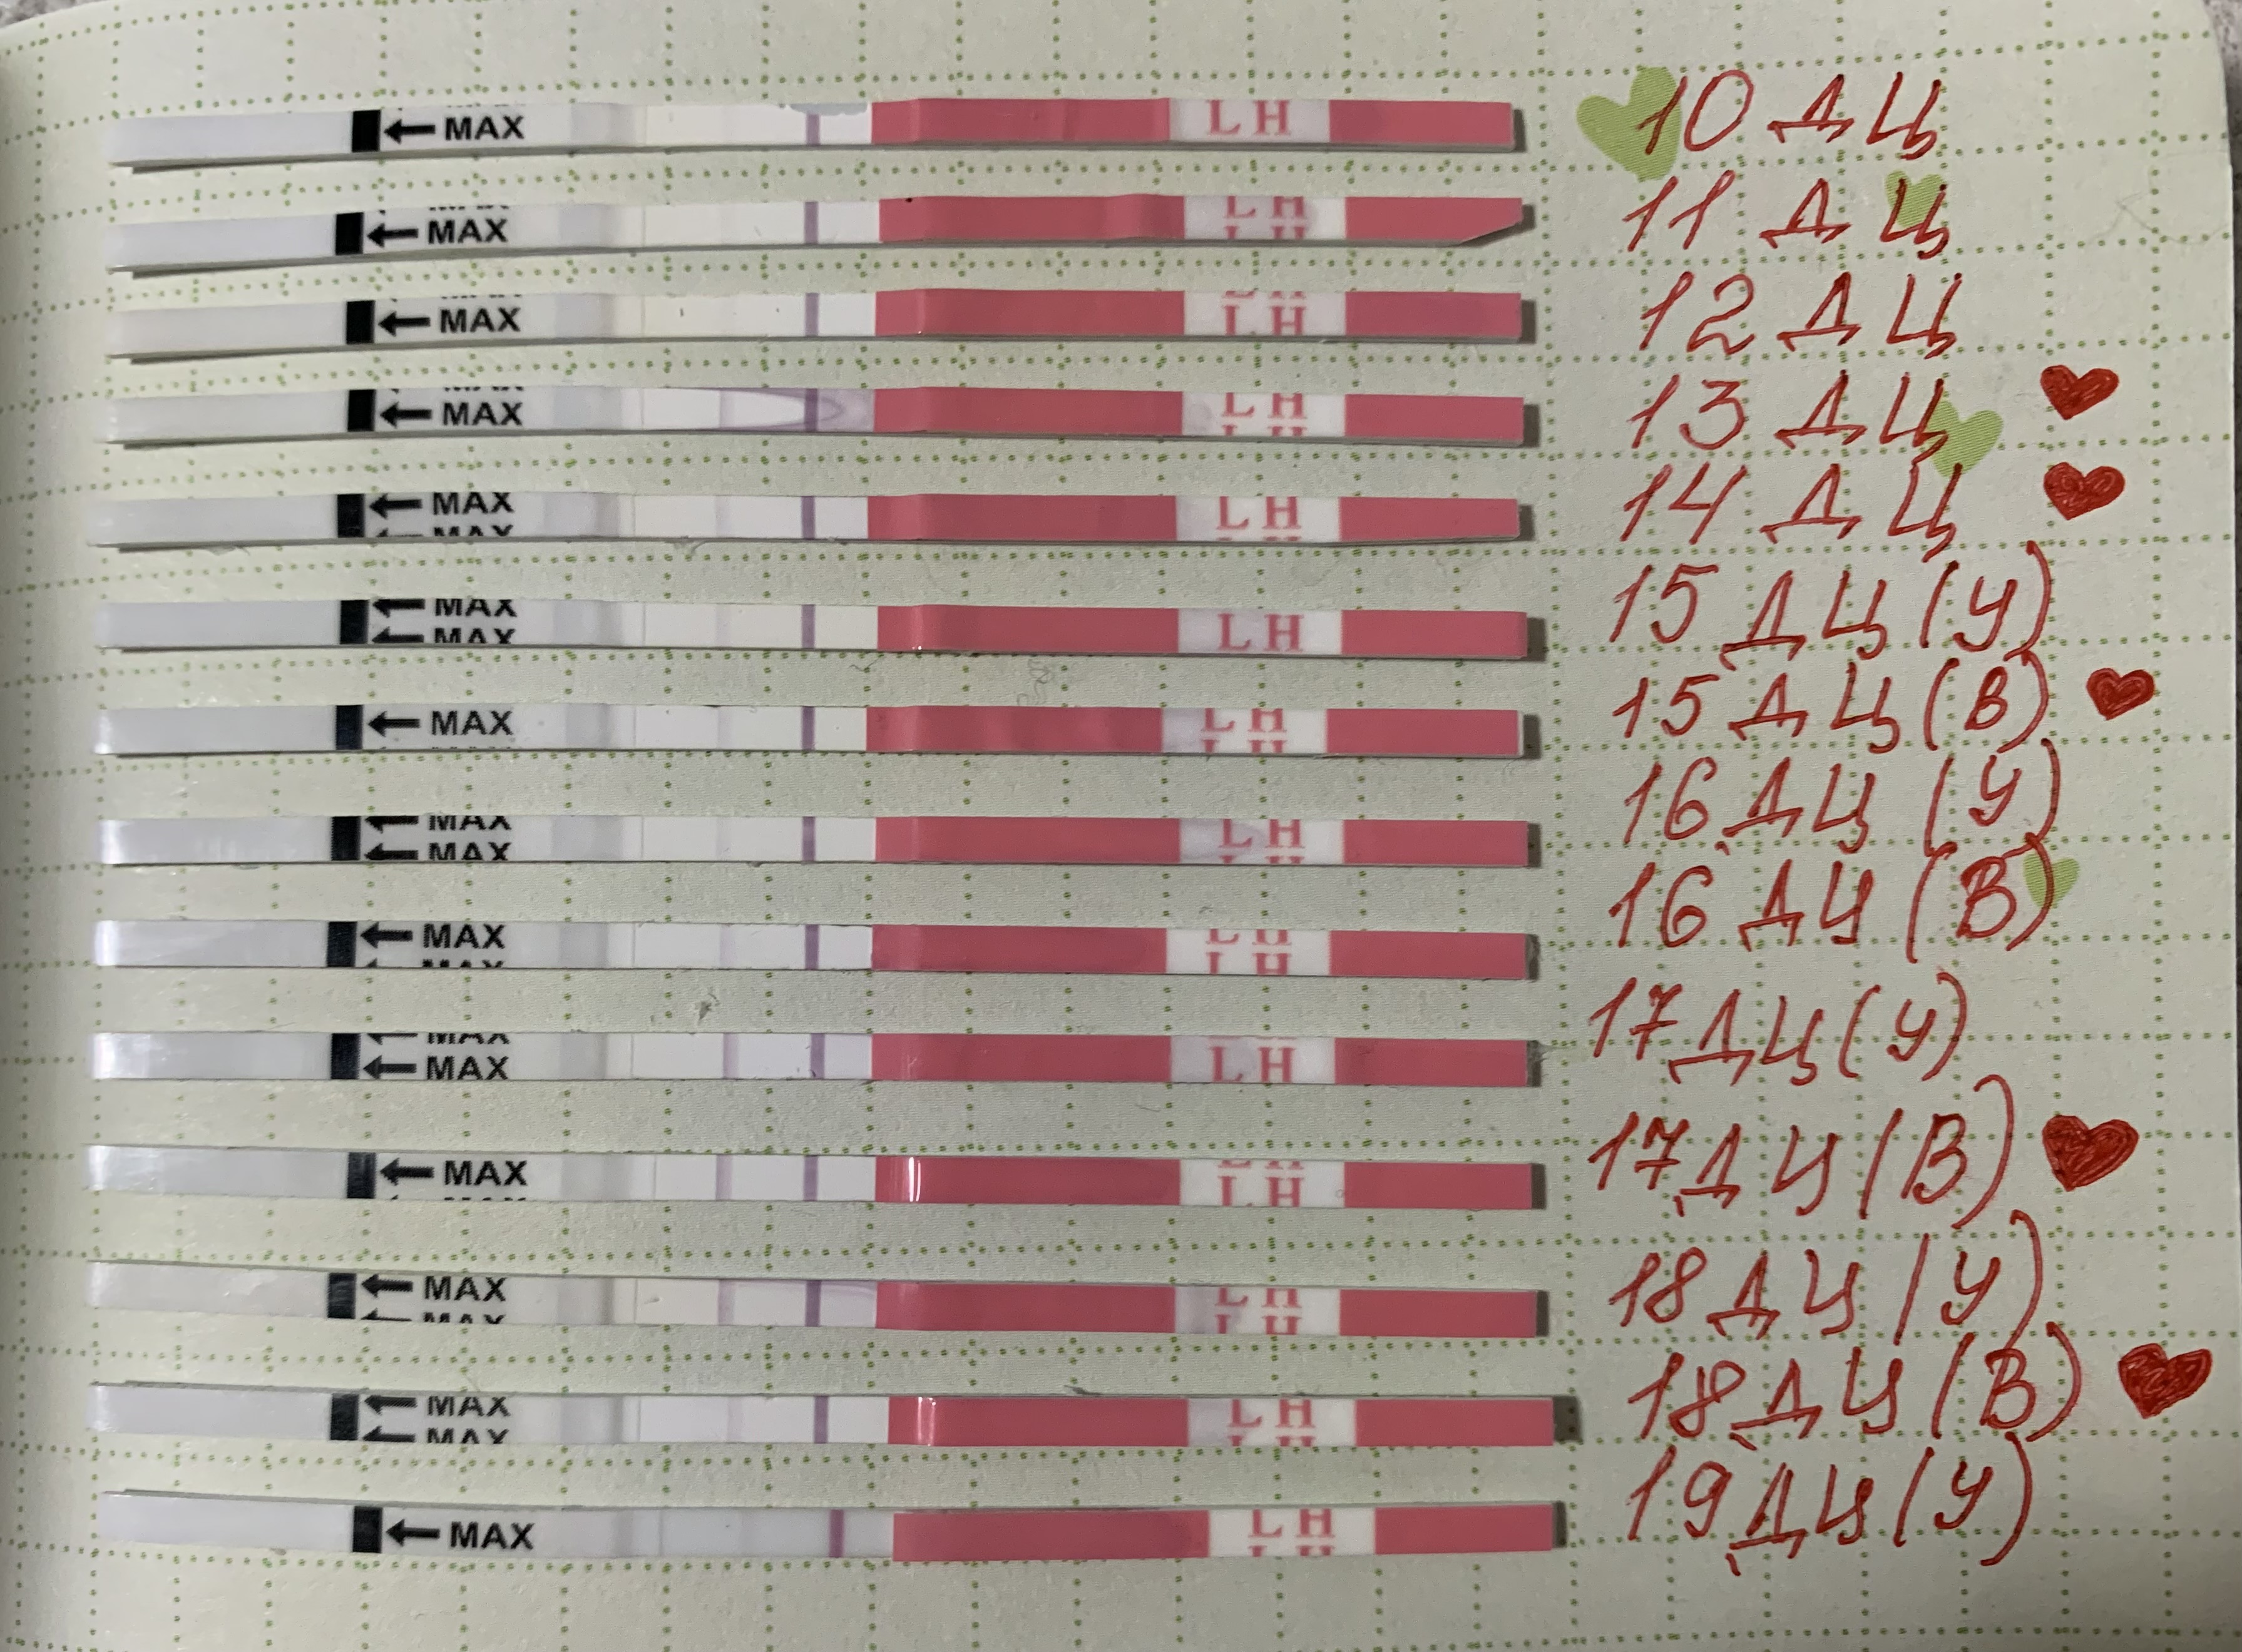 MAX LH 10 ДЦ
MAX LH 11 ДЦ
MAX LH 12 ДЦ
MAX LH 13 ДЦ
MAX LH 14 ДЦ
MAX MAX LH 15 ДЦ (У)
MAX LH 15 ДЦ (В)
MAX MAX LH 16 ДЦ (У)
MAX LH 16 ДЦ (В)
MAX MAX LH 17 ДЦ (У)
MAX LH 17 ДЦ (В)
MAX LH 18 ДЦ (У)
MAX MAX LH 18 ДЦ (В)
MAX LH 19 ДЦ (У)